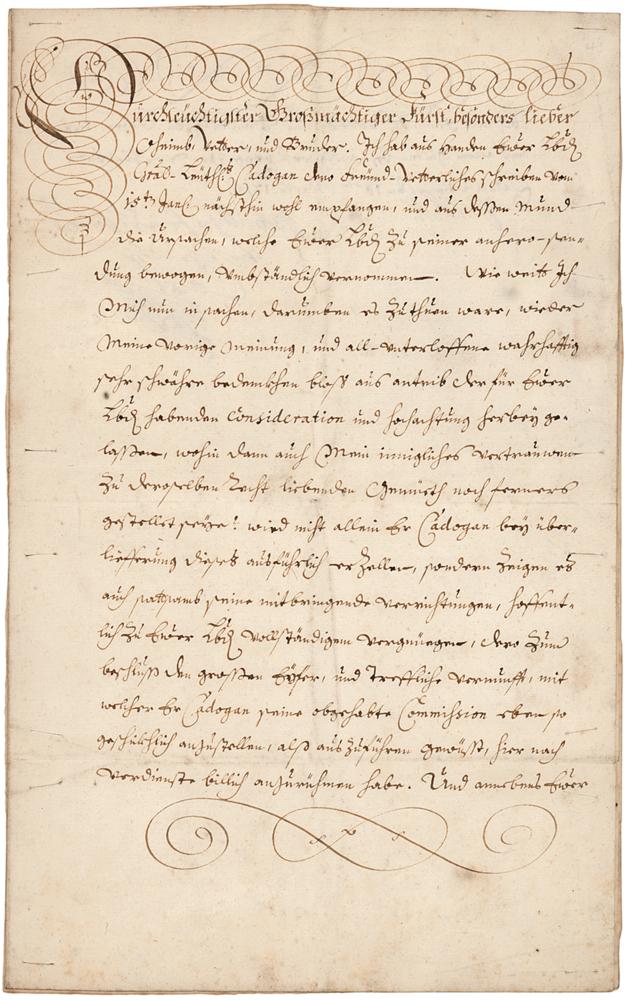 Durchleuchtigster Großmächtiger Fürst, besonders lieber
Oheimb, Vetter, und Bruder. Ich hab aus Handen Ewer Lbd
Gral-Leuthts Cadogan dero freünd-Vetterliches schreiben vom
15ten Janl nächsthin wohl empfangen, und aus deßen Mund
die Ursachen, welche Ewer Lbd zu seiner anhero-sen-
dung bewogen, Umbständlich vernommen. Wie weith Ich
Mich nun in sachen, darumben es zu thuen ware, wieder
Meine vorige Meinung, und all-unterloffene wahrhafftig
sehr schwähre bedenkhen bloß aus antrib der für Ewer
Lbd habenden Consideration und hochachtung herbey ge-
laßen, wohin dann auch Mein innigliches vertrauwen
zu deroselben Recht liebenden Gemüeth noch ferners
gestellet seye! wird nicht allein Er Cadogan bey über-
lieferung dieses ausführlich erzellen, sondern zeigen es
auch sattsamb seine mitbringende verrichtungen, hoffent-
lich zu Ewer Lbd vollständigem vergnüegen, dero zum
beschluß den großen Eyfer, und treffliche vernunfft, mit
welcher Er Cadogan seine obgehabte Commission eben so
geschükhlich anzustellen, alß auszuführen gewüsst, hier nach
verdienste billich anzurühmen habe. Und annebens Ewer